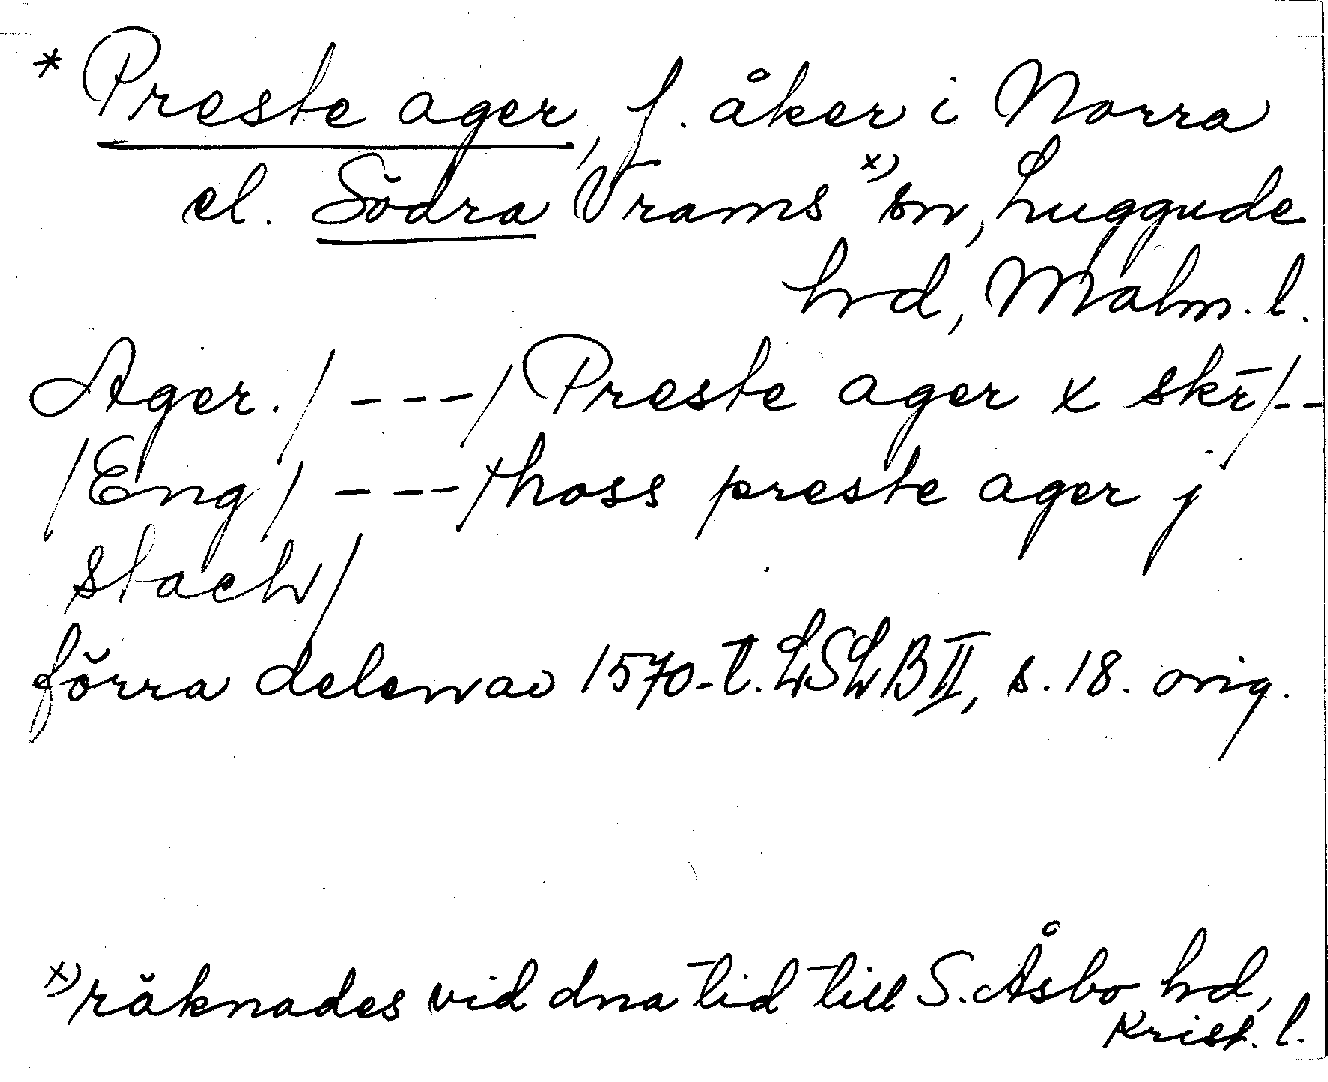 * Preste ager, f. åker i Norra
el. Södra Vrams x) sn, Luggude
hd, Malm. l.
Ager. / --- / Preste ager x skr̄ /--
/Eng/ --- / hoss preste ager j
stach/
förra delen av 1570-t. LSLB II, s. 18. orig.
x) räknades vid dna tid till S. Åsbo hd,
Krist. l.